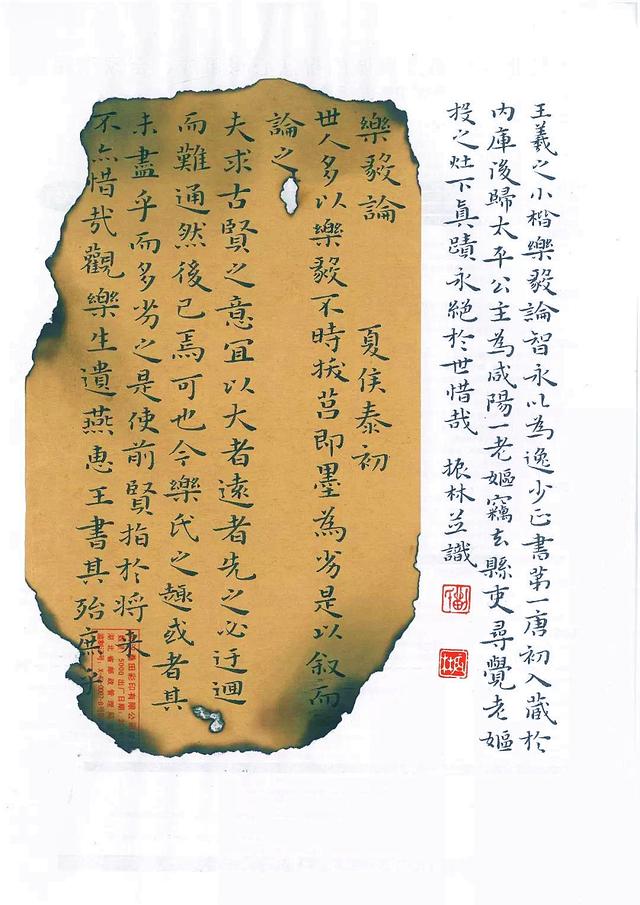 王羲之小楷樂毅論智永以為逸少正書第一唐初入藏於
内庫後歸太平公主為咸陽一老嫗竊去縣吏尋覺老嫗
投之灶下真蹟永絕於世惜哉 振林並識
樂毅論 夏侯泰初
世人多以樂毅不時拔莒即墨為劣是以叙而
論之
夫求古賢之意宜以大者遠者先之必迂迴
而難通然後已焉可也今樂氏之趣或者其
未盡乎而多劣之是使前賢指於将来
不亦惜哉觀樂生遺燕惠王書其殆庶乎
田彩印有限公
5000 出厂日期
湖北省邮政管理局